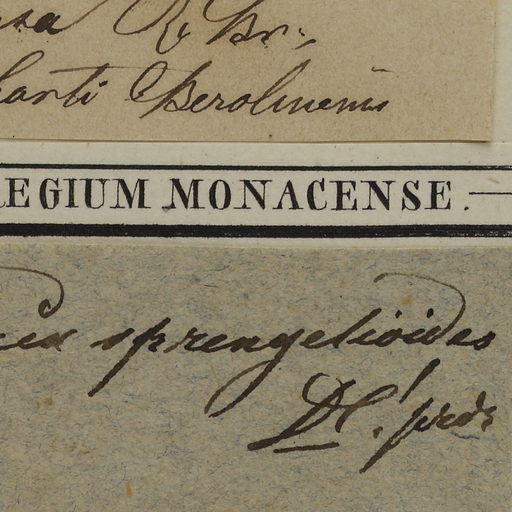 R. Br.,
horti Berolinensis
REGIUM MONACENSE.
sprengelioides
DC.! prod.